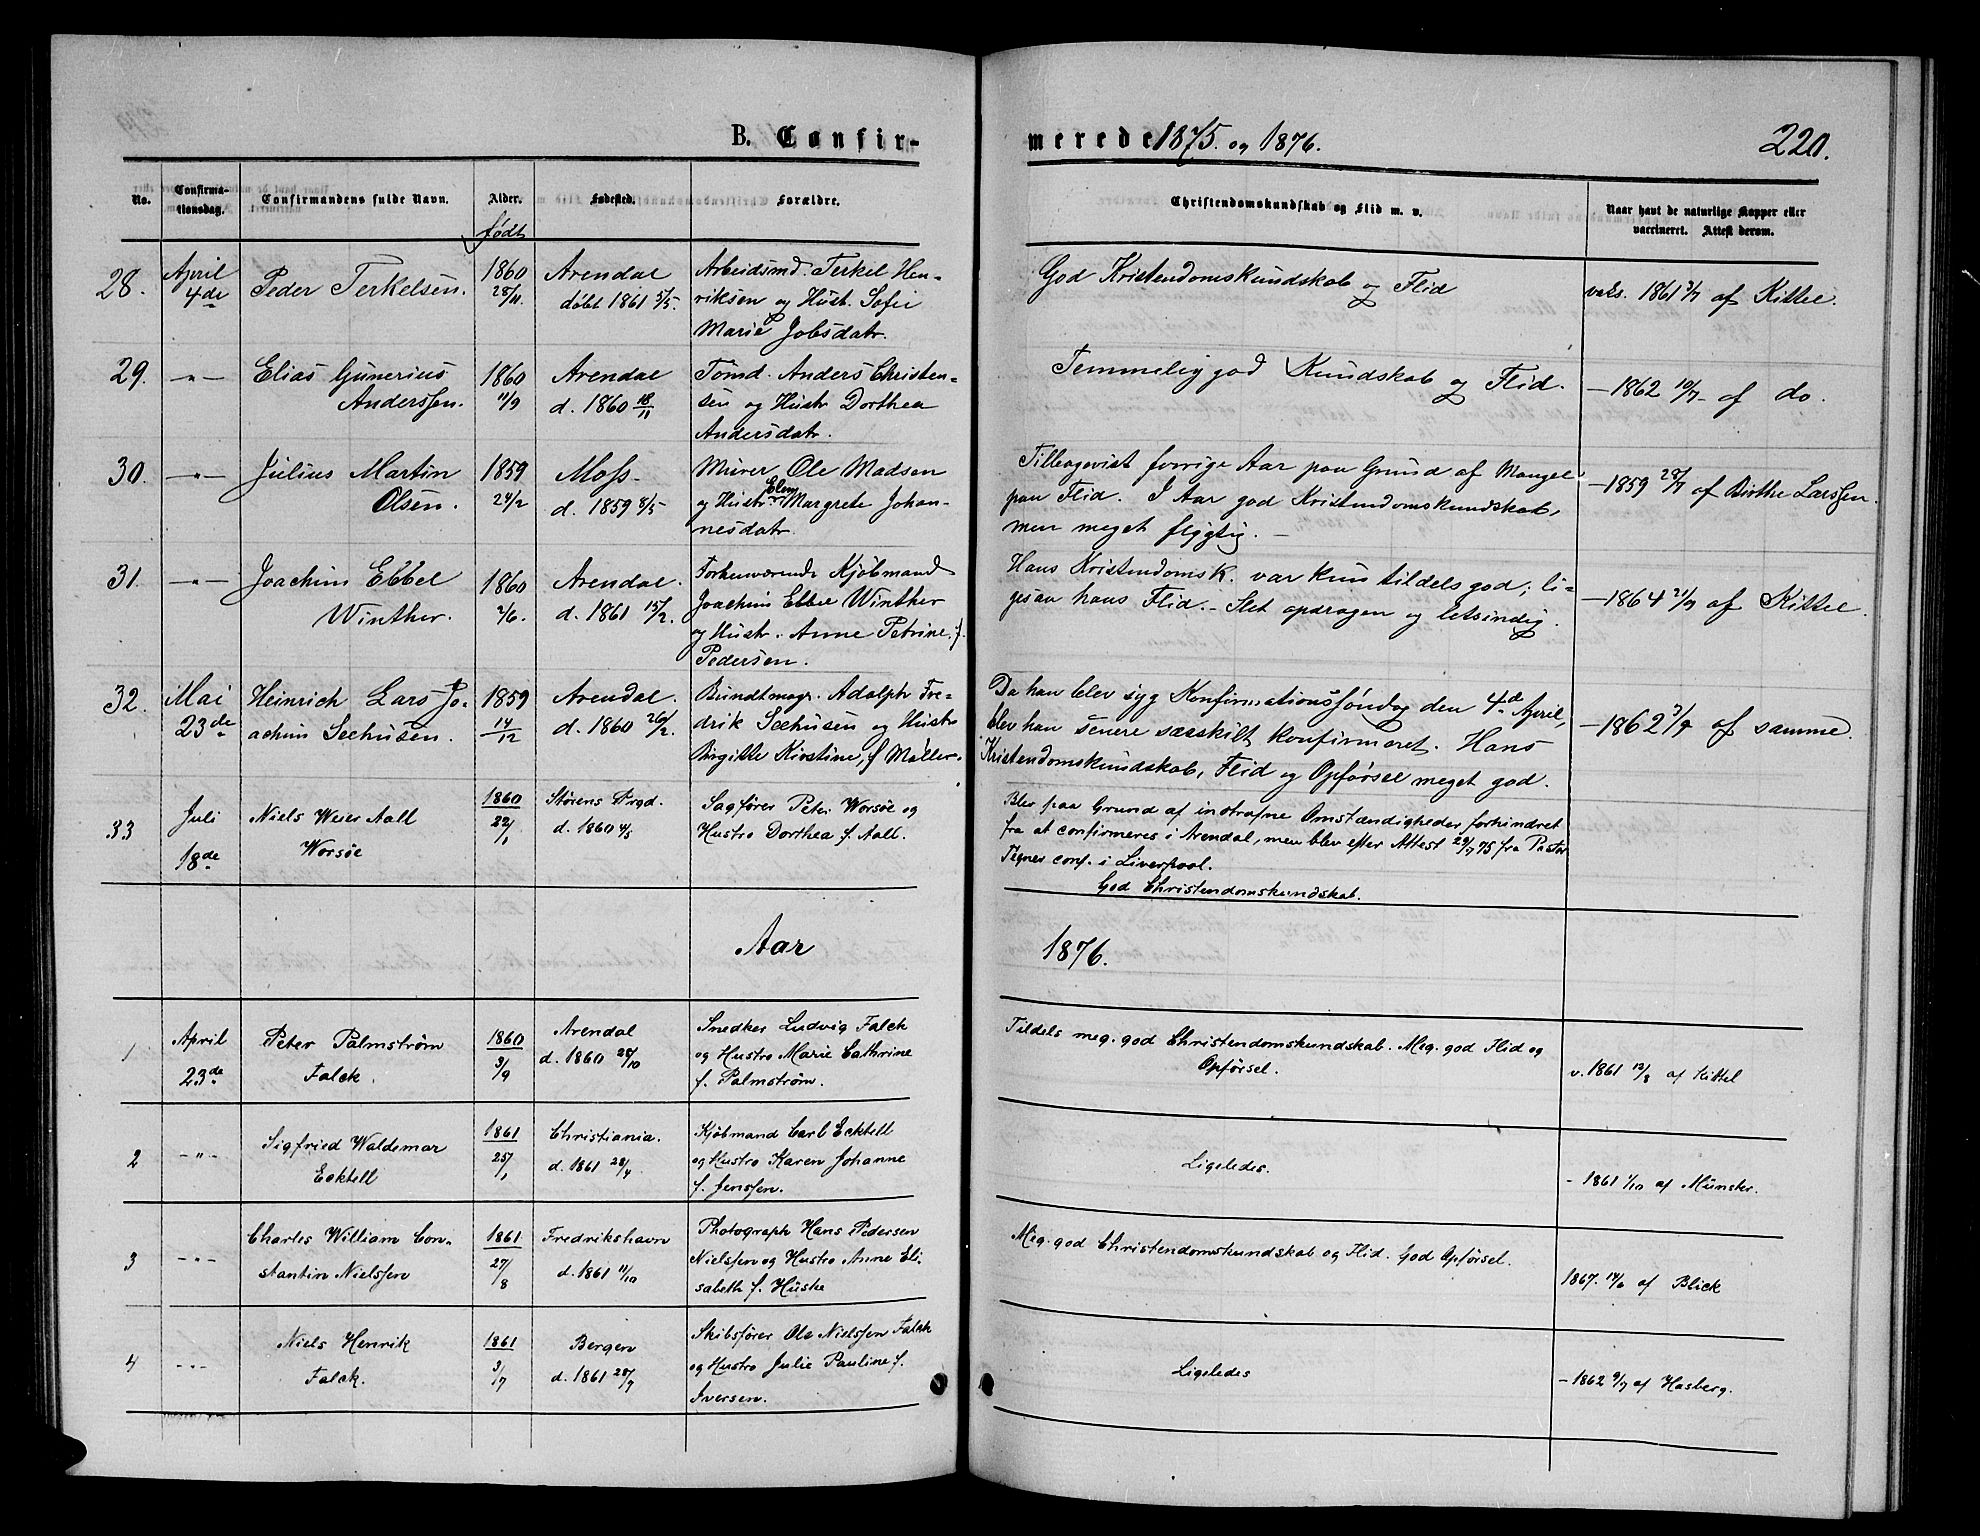 B. Confir-
merede 1875. og 1876.
220.
No.
Confirma-
tionsdag.
Confirmandens fulde Navn.
Alder.
født
Fødested.
Forældre.
Christendomskundskab og Flid m. v.
Naar havt de naturlige Kopper eller
vaccineret. Attest derom.
28.
April
4de
Peder Terkelsen.
1860
28/11.
Arendal
døbt 1861 5/5.
Arbeidsmd. Terkel Hen-
riksen og Hust. Sofie
Marie Jobsdatr.
God Kristendomskundskab og Flid
vaks. 1861 3/7 af Kittel.
29.
-"-
Elias Gunerius
Anderssen.
1860
11/9
Arendal
d. 1860 18/11
Tømd. Anders Christen-
sen og Hustr Dorthea
Andersdatr.
Temmelig god Kundskab og Flid.
- 1862 10/7 - af do.
30.
-"-
Julius Martin
Olsen.
1859
24/2
Moss.
d. 1859 8/5
Murer Ole Madsen
og Hustr. Elen Margrete Johan-
nesdatr.
Tilbagevist forrige Aar paa Grund af Mangel
paa Flid. I Aar god Kristendomskundskab,
men meget flygtig. -
- 1859 28/7 af Birthe Larssen.
31.
-"-
Joachim Ebbel
Winther.
1860
2/6.
Arendal.
d. 1861 15/2.
Forhenværende Kjøbmand
Joachim Ebbe Winther
og Hustr. Anne Petrine f.
Pedersen.
Hans Kristendomsk. var kun tildels god; li-
gesaa hans Flid. - Slet opdragen og letsindig.
- 1864 21/9 af Kittel.
32.
Mai
23de
Heinrich Lars Jo-
achim Seehusen.
1859
14/12
Arendal.
d. 1860 26/2.
Bundtmagr. Adolph Fre-
drik Seehusen og Hustr
Birgitte Kirstine, f Møller.
Da han blev syg Konfirmationssøndag den 4de April,
blev han senere særskilt konfirmeret. Hans
Kristendomskundskab, Flid og Opførsel meget god.
- 1862 3/7 af samme.
33
Juli
18de
Niels Weier Aall
Worsøe
1860
22/1
Størens Prgd.
d. 1860 4/5
Sagfører Peter Worsøe og
Hustro Dorthea f. Aall.
Blev paa Grund af indtrafne Omstændigheder forhindret
fra at confirmeres i Arendal, men blev efter Attest 29/7 75 fra Pastor
Tegner conf. i Liverpool.
God Christendomskundskab.
Aar
1876.
1
April
23de
Peter Palmstrøm
Falck.
1860
3/9
Arendal
d. 1860 28/10
Snedker Ludvig Falck
og Hustro Marie Cathrine
f. Palmstrøm.
Tildels meg. god Christendomskundskab. Meg. god Flid og
Opførsel.
v. 1861 12/8 af Kittel
2
-"-
Sigfried Waldemar
Ecktell
1861
25/1
Christiania.
d. 1861 28/4
Kjøbmand Carl Ecktell
og Hustro Karen Johanne
f. Jenssen.
Ligeledes.
- 1861 1/10 af Münster.
3
-"-
Charles William Con-
stantin Nielssen
1861
27/8
Fredrikshavn
d. 1861 11/10
Photograph Hans Pedersen
Nielssen og Hustro Anne Eli-
sabeth f. Huske
Meg. god Christendomskundskab og Flid. God Opførsel.
1867. 14/6 af Blick
4
-"-
Niels Henrik
Falck.
1861
3/7
Bergen
d. 1861 28/7
Skibsfører Ole Nielssen Falck
og Hustro Julie Pauline f.
Iversen.
Ligeledes
- 1862 9/7 af Hasberg.